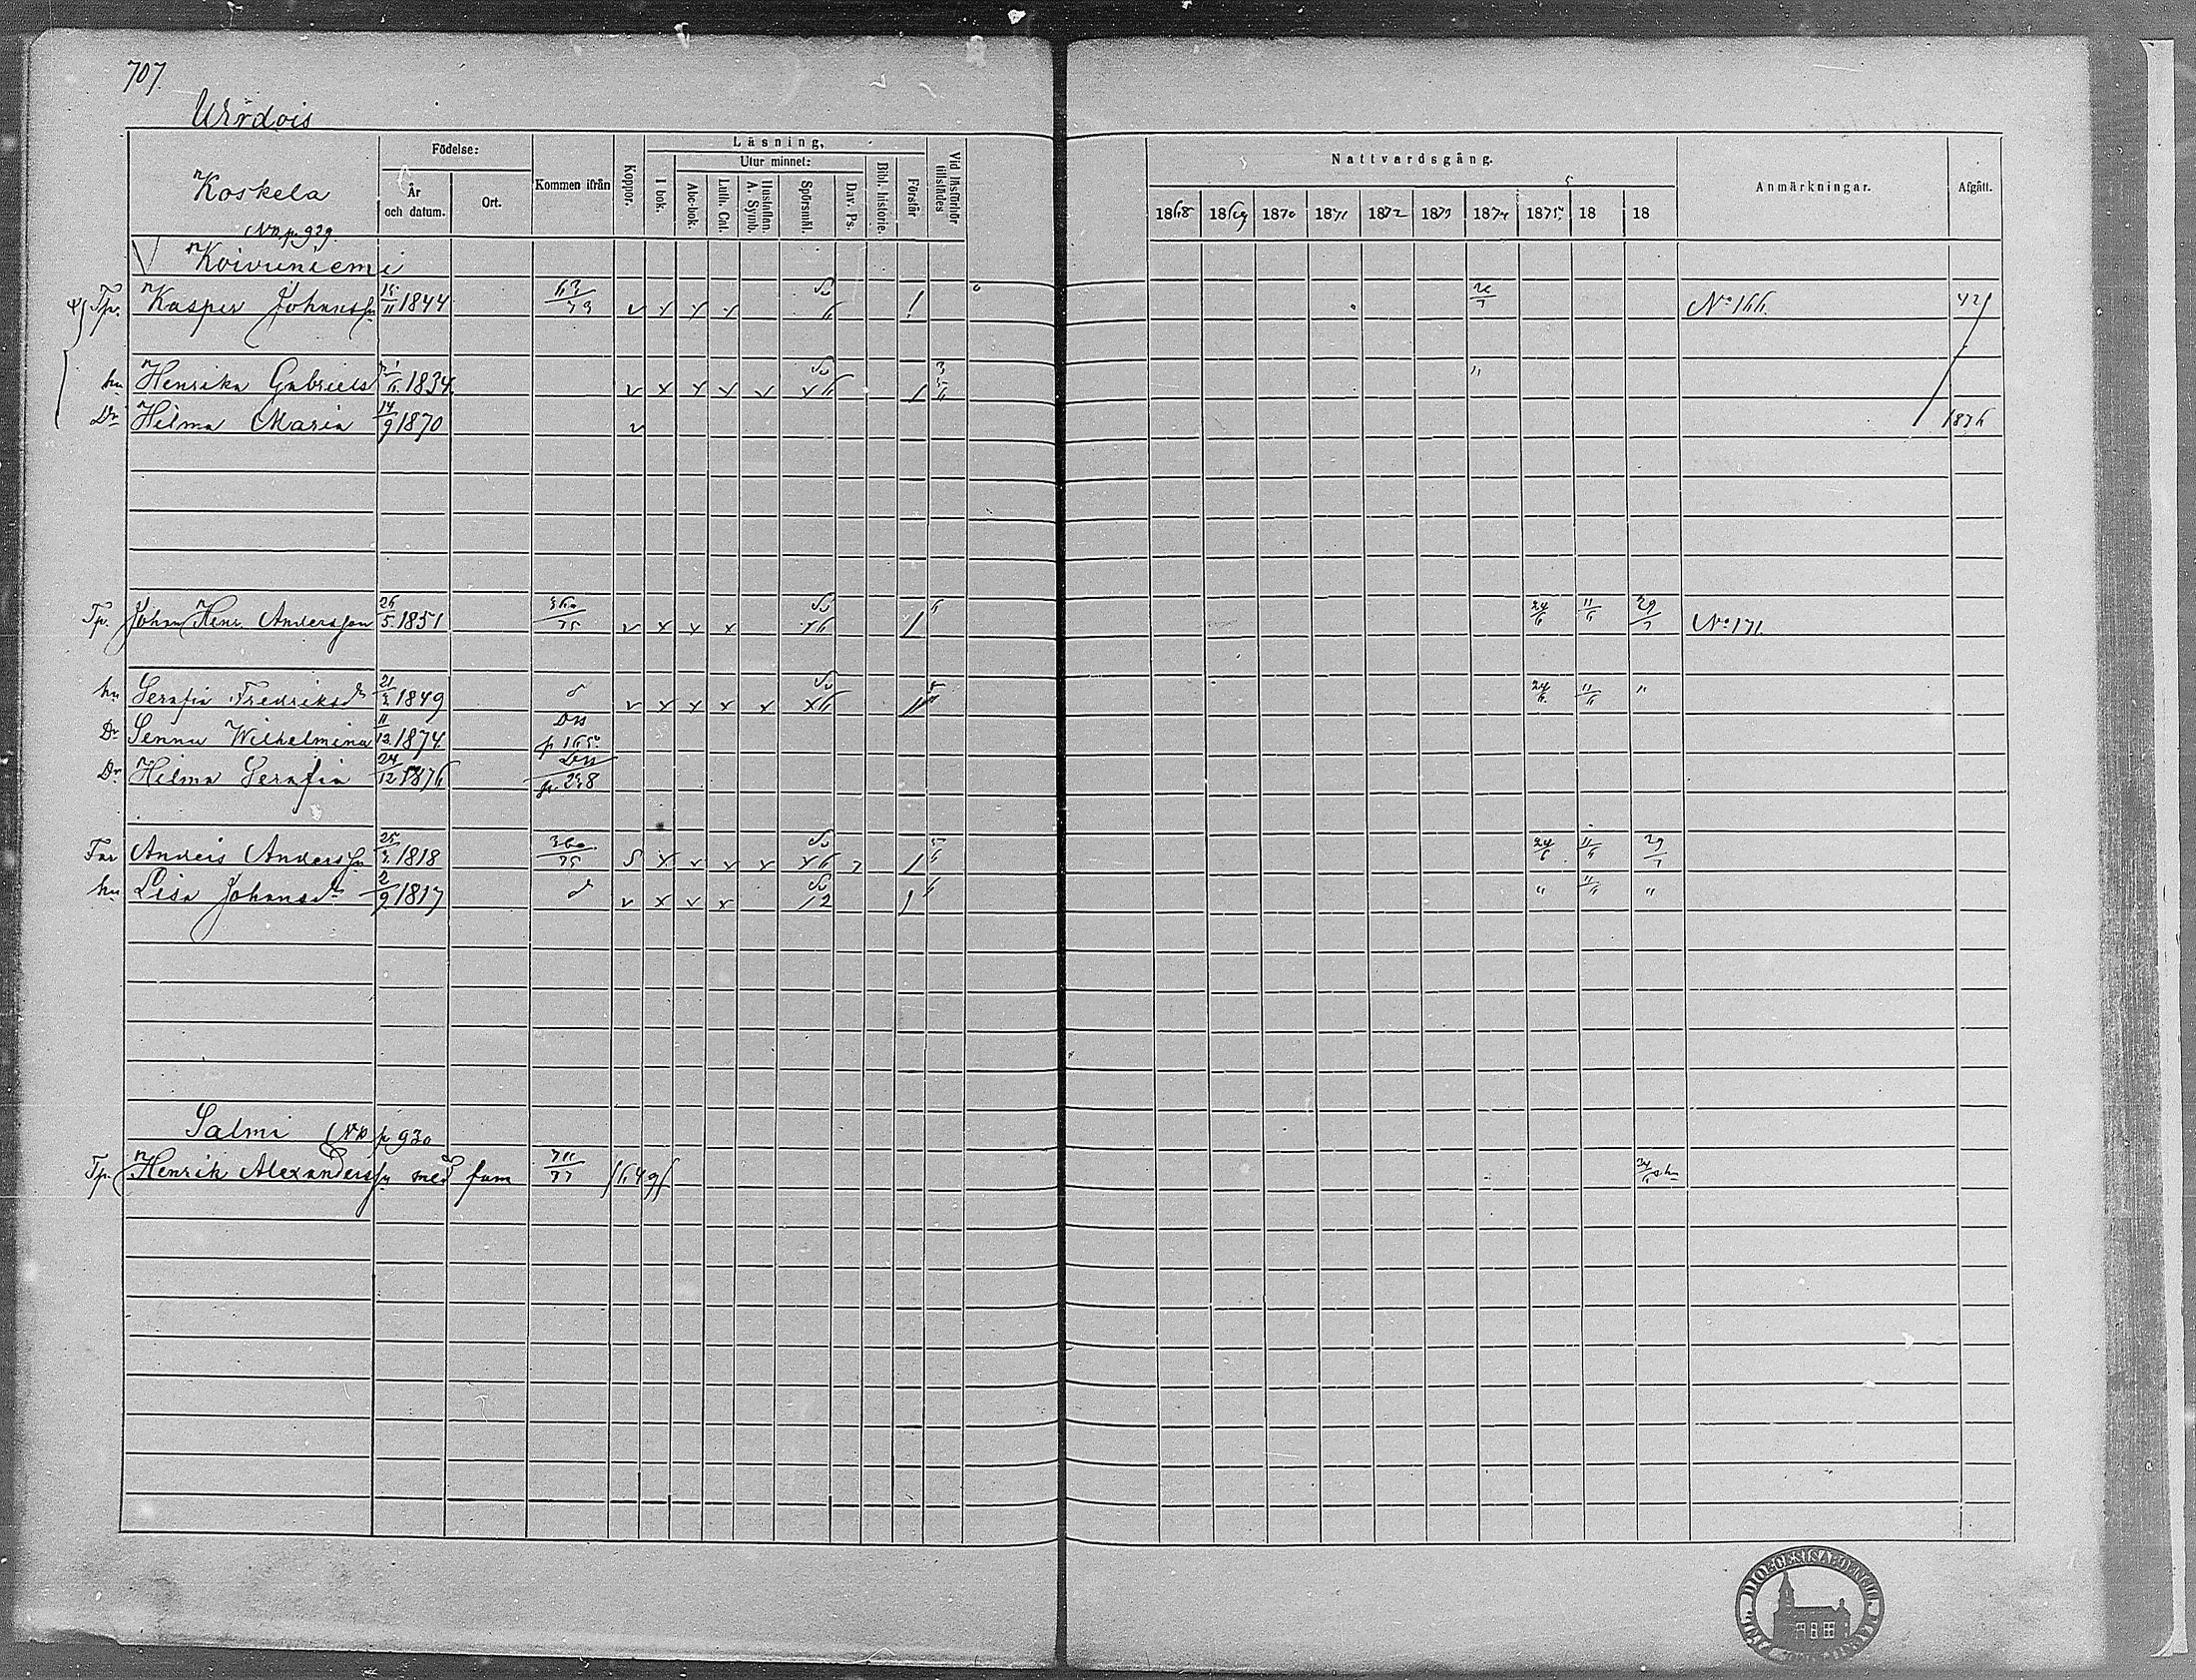 707.
Urdois
Koskela
Födelse:
År och datum.
Ort.
Kommen ifrån
Koppor.
Läsning,
I bok.
Utur minnet:
Abc-bok.
Luth. Cat.
Hustaflan. A. Symb.
Spörsmål.
Dav. Ps.
Bibl. historie.
Förstår
Vid läsförhör tillstädes
Nattvardsgång.
1868 1869 1870 1871 1872 1873 1874 1875 18 18
Anmärkningar.
Afgått.
NB p. 929.
Koivuniemi
Tp. Kasper Johanss 15/11 1844 63/73 v x x x 26/7 No 166. 42
hu Henrika Gabriels 1834 v x x x v x "
Dr Hilma Maria 14/9 1870 v 1876
Tp. Johan Henr. Andersson 26/5 1851 360/75 v x x x 24/6 11/6 29/7 No 171.
hu Serafia Fredriksd 21/3 1849 v x x x x 24/6 11/6 "
Dr Senna Wilhelmina 11/12 1874 p 165
Dr Hilma Serafia 24/12 1876 p. 238
Far Anders Anderss 25/3 1818 360/75 x v x x 24/6 11/6 29/7
hu Lisa Johansd 2/9 1817 v x v x 12 " 11/6 "
Salmi (NB p 930
Tp. Henrik Alexanderss med fam 711/77 1649